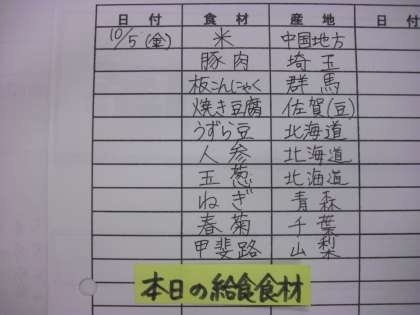 日付 食材 産地 日付
10/5(金) 米 中国地方
豚肉 埼玉
板こんにゃく 群馬
焼き豆腐 佐賀(豆)
うずら豆 北海道
人参 北海道
玉葱 北海道
ねぎ 青森
春菊 千葉
甲斐路 山梨
本日の給食食材